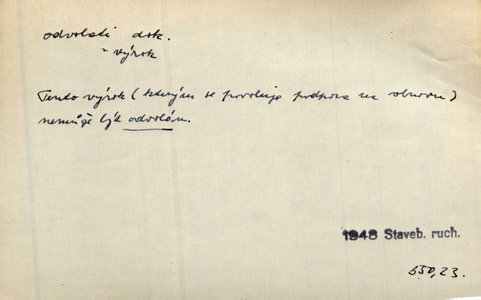 odvolati dok.
~ výrok
Tento výrok (kterým se povoluje podpora na obnovu)
nemůže být odvolán.
1948 Staveb. ruch.
550, 23.